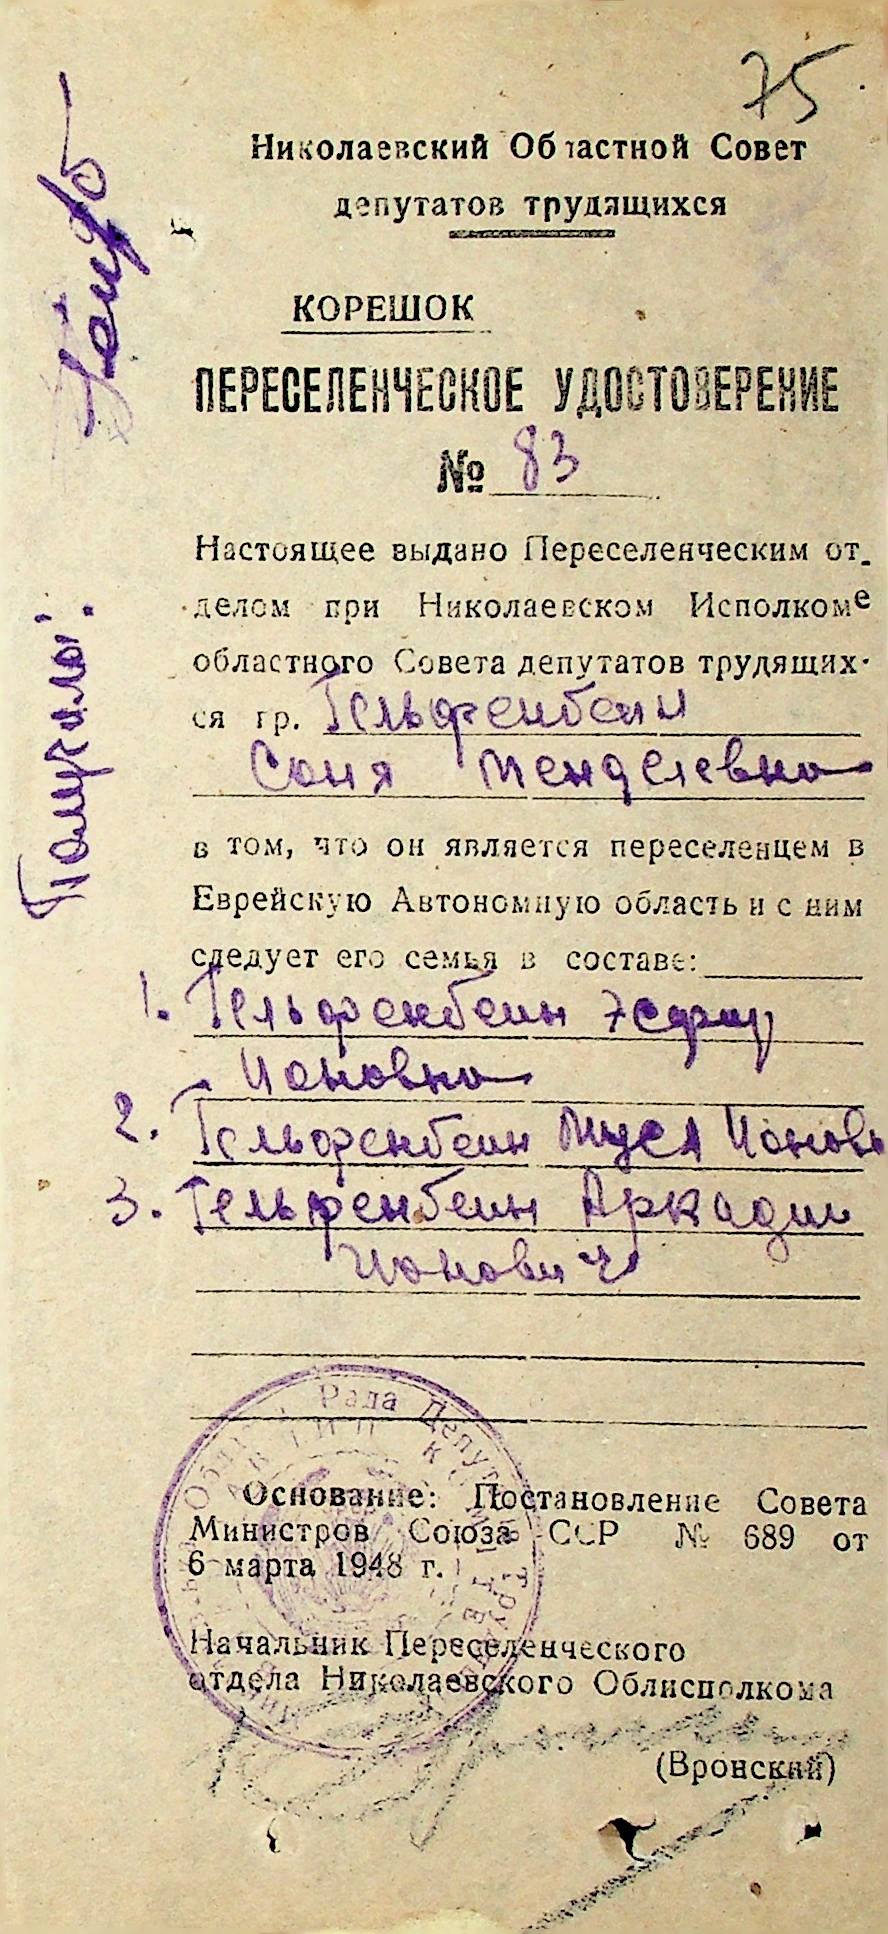 75
Николаевский Областной Совет
депутатов трудящихся
КОРЕШОК
ПЕРЕСЕЛЕНЧЕСКОЕ УДОСТОВЕРЕНИЕ
№ 83
Настоящее выдано Переселенческим от-
делом при Николаевском Исполкоме
областного Совета депутатов трудящих-
ся гр. Гельфенбейн
Соня Менделевна
в том, что он является переселенцем в
Еврейскую Автономную область и с ним
следует его семья в составе:
1. Гельфенбейн Эсфир
Ионовна
2. Гельфенбейн Муся Ионовн
3. Гельфенбейн Аркадий
Ионович
Основание: Постановление Совета
Министров Союза ССР № 689 от
6 марта 1948 г.
Начальник Переселенческого
отдела Николаевского Облисполкома
(Вронский)
Получила:
Рада Депутатів Трудящих